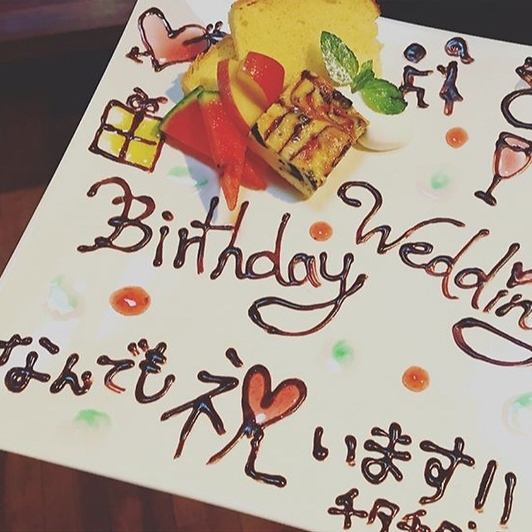 Birthday Wedding
なんでも祝います!!